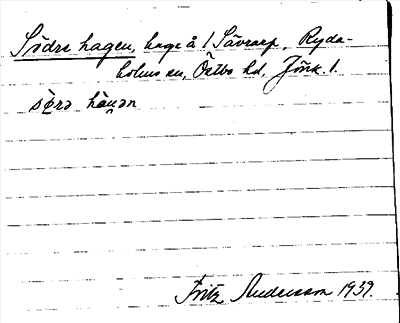 Södra hagen, hage å 1 Sävrarp, Ryda-
holms sn, Östbo hd, Jönk. l.
sø̀rə hàɡən
Fritz Andersson 1939.